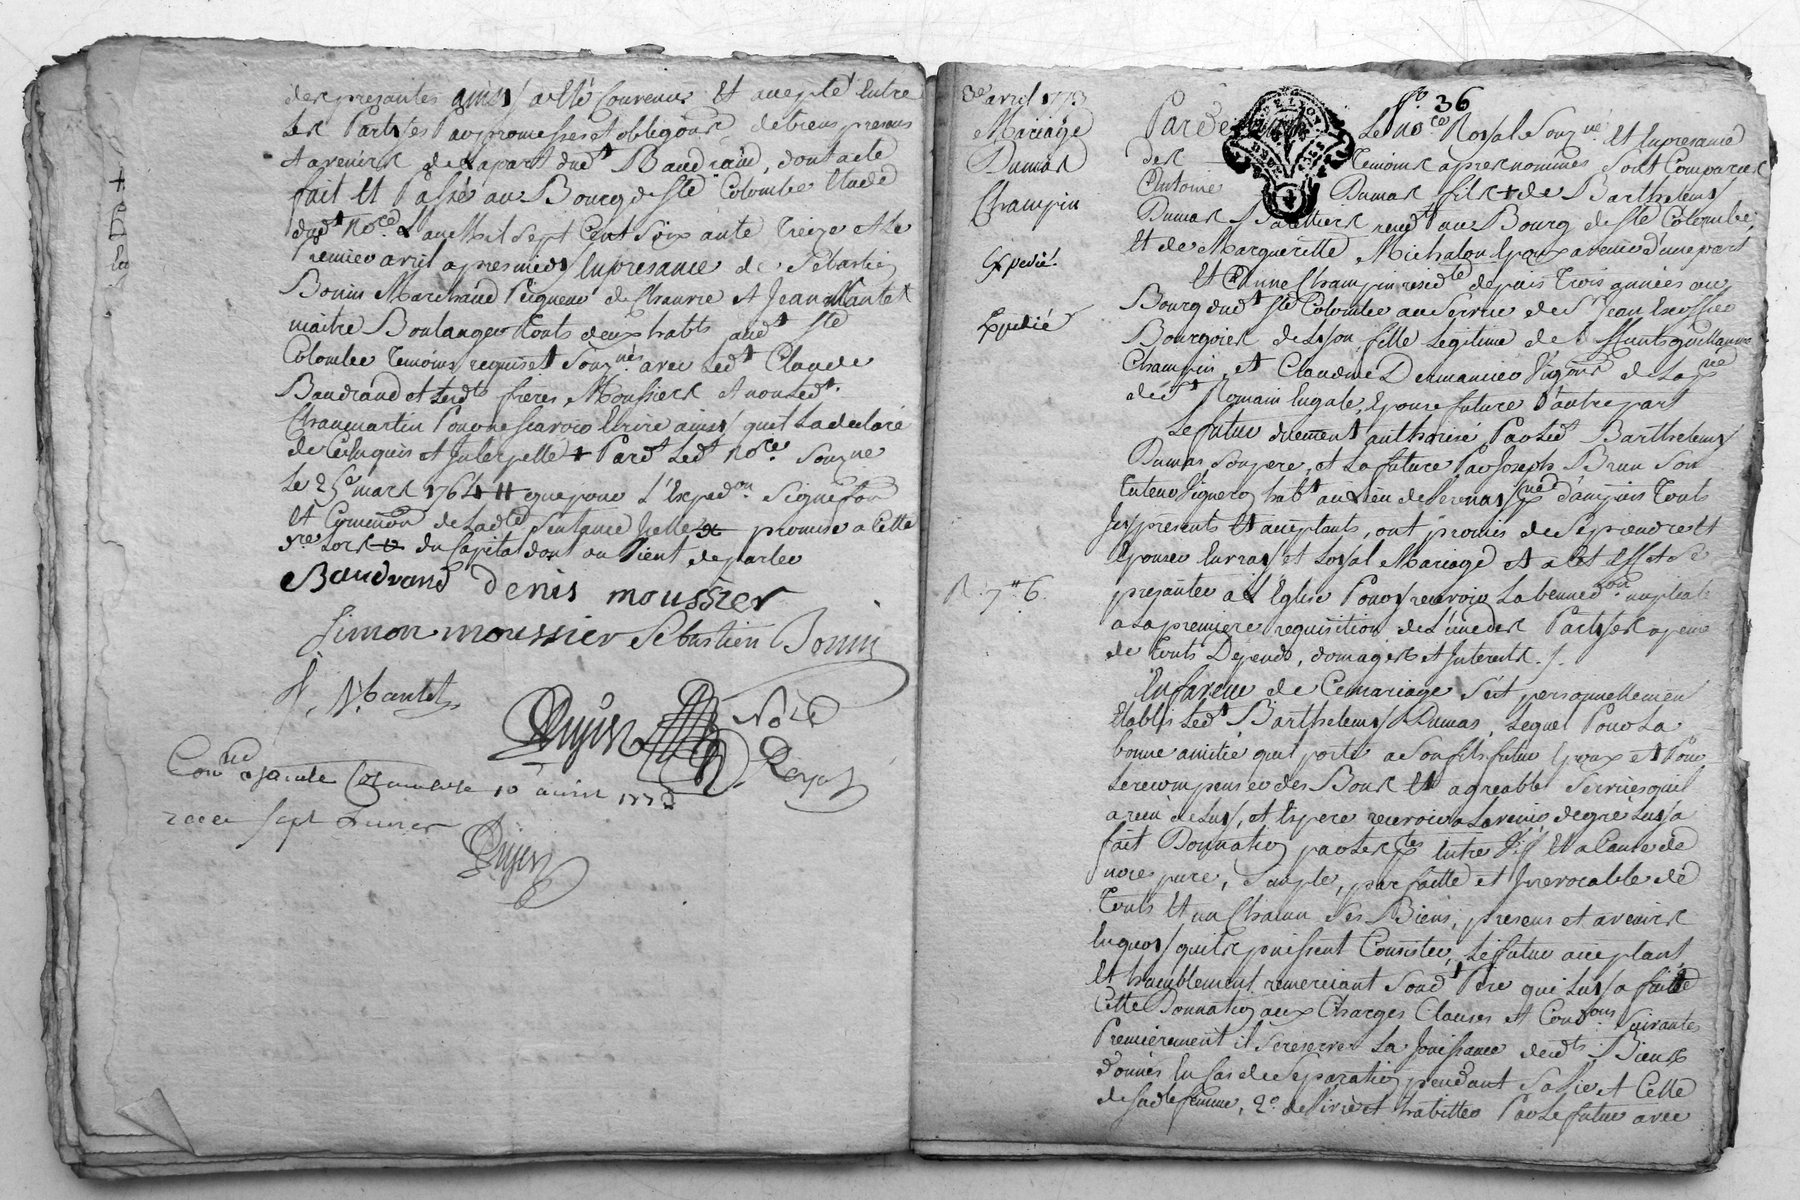 des presantes ainsy a été Convenu Et accepté Entre
Les Parties Par promesses et obligõns de biens presens
et avenirs de la part dudt Baudrand, dont acte
fait Et Passé au Bourg de Ste Colombe Etude
dudt Nore. L'an Mil Sept Cent Soix ante Treize et Le
Premier avril apres midy En presance de Sebastien
Bonin Marchand Peigneur de Chanvre et Jean Mantet
maître Boulanger touts deux habts audt Ste
Colombe Temoins requis et Souznés avec Ledt Claude
Baudrand et Lesdts freres Moussiers et non Ledt
Chaumartin Pour ne Scavoir Ecrire ainsy quil La declaré
de Ce Enquis et Interpellé + Pardt Ledt Nore Souzné
Le 25e mars 1764 # que pour L'Exped.on
Et Com de Ladte Sentance Celle promise a Cette
du Capital dont on Vient de parler
Baudrand denis moussier
Simon moussier Sebastien Bonin
Mantet
Dujin Nore
Royal
Conlé a Sainte Colombe le 10 avril 1773
recu sept Livres
Dujin
3e avril 1773
Mariage
Dumas
Champin
Expedié.
Expedié
R 7# 6
fo. 36
Pardevant Le nore Royal Souzné Et En presance
des Temoins apres nommés Sont Comparus
Antoine Dumas fils + de Barthelemy
Dumas resident au Bourg de Ste Colombe,
Et de Margueritte Michalon Epoux avenir d'une part
Et Anne Champin residte depuis Trois années au
Bourg dudt Ste Colombe au Service de Sr Jean
Bourgois de Lyon fille Legitime de deffunts Guillaume
Champin, et Claudine Dermancieu Vigons de La psse
de St Romain En gale, Epouse future d'autre part
Le futur düement authorisé Par Ledt Barthelemy
Dumas Son pere, et La future Par Joseph Brun Son
tuteur Vigneron habt au Lieu de Verenay psse d'ampuis Touts
Icy presents Et acceptants, ont promis de Se prendre Et
Epouser En vray et Loyal Mariage et a Cet Effet Se
presanter a L'Eglise Pour y recevoir La bennedon nuptiale
a La premiere requisition de L'une des Parties a peine
de touts Depends, domages et Interets. /.
En faveur de Ce mariage S'est personnellement
Etablis Ledt Barthelemy Dumas, Lequel Pour La
bonne amitié quil porte a Son fils futur Epoux et Pour
Le recompenser des Bons Et agreables Services quil
a recu de Luy, et Espere recevoir a Lavenir de gré Luy a
fait Donnation par Les ptes Entre Vifs Et a Cause de
noces pure, Simple, parfaitte et Irrevocable de
Touts Et un Chacun Ses Biens, presens et avenirs
En quoy quils puissent Consister, Le futur acceptant,
Et humblement remerciant Sondt Pere qui Luy a faitte
Cette Donnation aux Charges Clauses et Conditions Suivantes
Premierement il Se reserve La Jouissance desdts Biens
donnés En Cas de Separation pendant Sa Vie et Celle
de Sadte femme, 2o. de Vivre et habitter Par Le futur avec